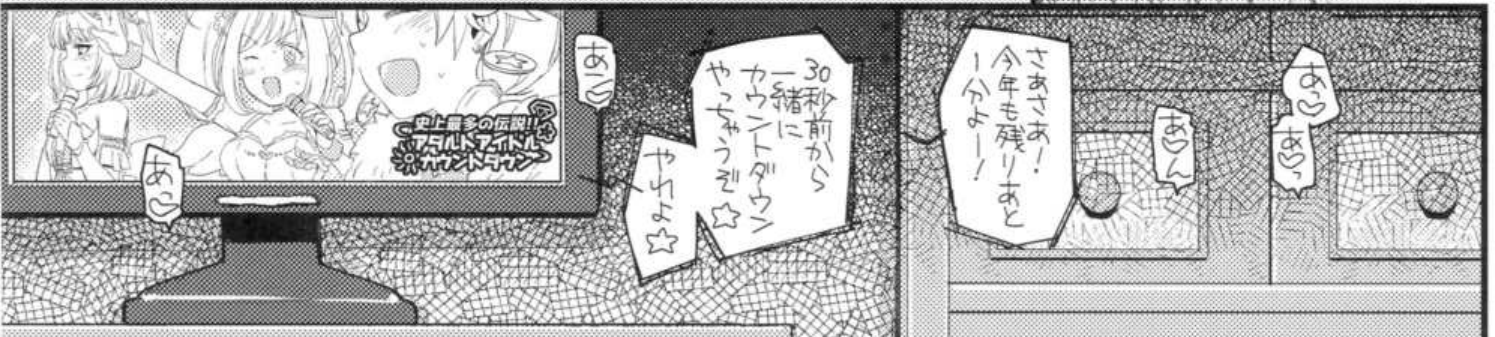 あっ♡
あ♡っ
あ♡ん
さあさあ!
今年も残りあと
1分よー!
30秒前から
一緒に
カウントダウン
やっちゃうぞ☆
やれよ☆
あ♡
史上最多の伝説!!
アダルトアイドル
カウントダウン
あっ♡